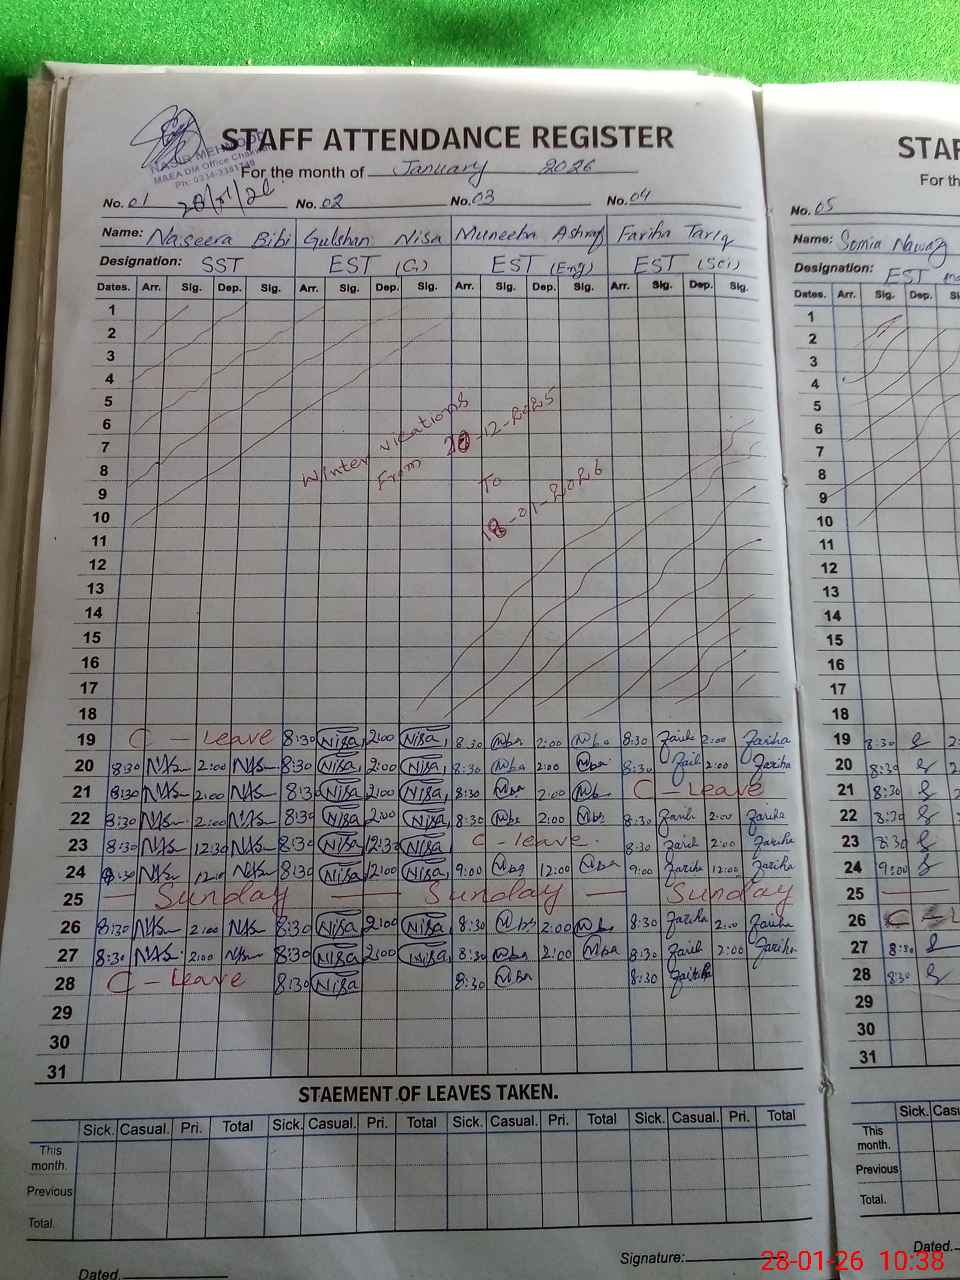 STAFF ATTENDANCE REGISTER
NASIR MEHMOOD
M&EA DM Office Chakwal
For the month of January 2026
28/01/26
No. 01 No. 02 No. 03 No. 04
Name: Naseera Bibi Gulshan Nisa Muneeba Ashraf Fariha Tariq
Designation: SST EST (G) EST (Eng) EST (Sci)
Dates. Arr. Sig. Dep. Sig. Arr. Sig. Dep. Sig. Arr. Sig. Dep. Sig. Arr. Sig. Dep. Sig.
1
2
3
4
5
6
7
8
9
10
11
12
13
14
15
16
17
18
Winter vications
From 20-12-2025
To
18-01-2026
19 C - Leave 8:30 Nisa 2:00 Nisa 8:30 Mba 2:00 Mba 8:30 Fariha 2:00 Fariha
20 8:30 NAS 2:00 NAS 8:30 Nisa 2:00 Nisa 8:30 Mba 2:00 Mba 8:30 Fariha 2:00 Fariha
21 8:30 NAS 2:00 NAS 8:30 Nisa 2:00 Nisa 8:30 Mba 2:00 Mba C - Leave
22 8:30 NAS 2:00 NAS 8:30 Nisa 2:00 Nisa 8:30 Mba 2:00 Mba 8:30 Fariha 2:00 Fariha
23 8:30 NAS 12:30 NAS 8:30 Nisa 12:30 Nisa C - leave. 8:30 Fariha 2:00 Fariha
24 8:30 NAS NAS 8:30 Nisa Nisa 9:00 Mba 12:00 Mba 9:00 Fariha 12:00 Fariha
25 — Sunday — Sunday — Sunday
26 8:30 NAS 2:00 NAS 8:30 Nisa 2:00 Nisa 8:30 Mba 2:00 Mba 8:30 Fariha 2:00 Fariha
27 8:30 NAS 2:00 NAS 8:30 Nisa 2:00 Nisa 8:30 Mba 2:00 Mba 8:30 Fariha 2:00 Fariha
28 C - Leave 8:30 Nisa 8:30 Mba 8:30 Fariha
29
30
31
STAEMENT OF LEAVES TAKEN.
Sick. Casual. Pri. Total Sick. Casual. Pri. Total Sick. Casual. Pri. Total Sick. Casual. Pri. Total
This month.
Previous
Total.
Dated. Signature:
STAF
For th
No. 05
Name: Somia Nawaz
Designation: EST
Dates. Arr. Sig. Dep. Si
1
2
3
4
5
6
7
8
9
10
11
12
13
14
15
16
17
18
19 8:30
20 8:30
21 8:30
22 8:30
23 8:30
24 9:00
25
26 C - L
27 8:30
28 8:30
29
30
31
Sick. Casu
This month.
Previous
Total.
Dated.
28-01-26 10:38